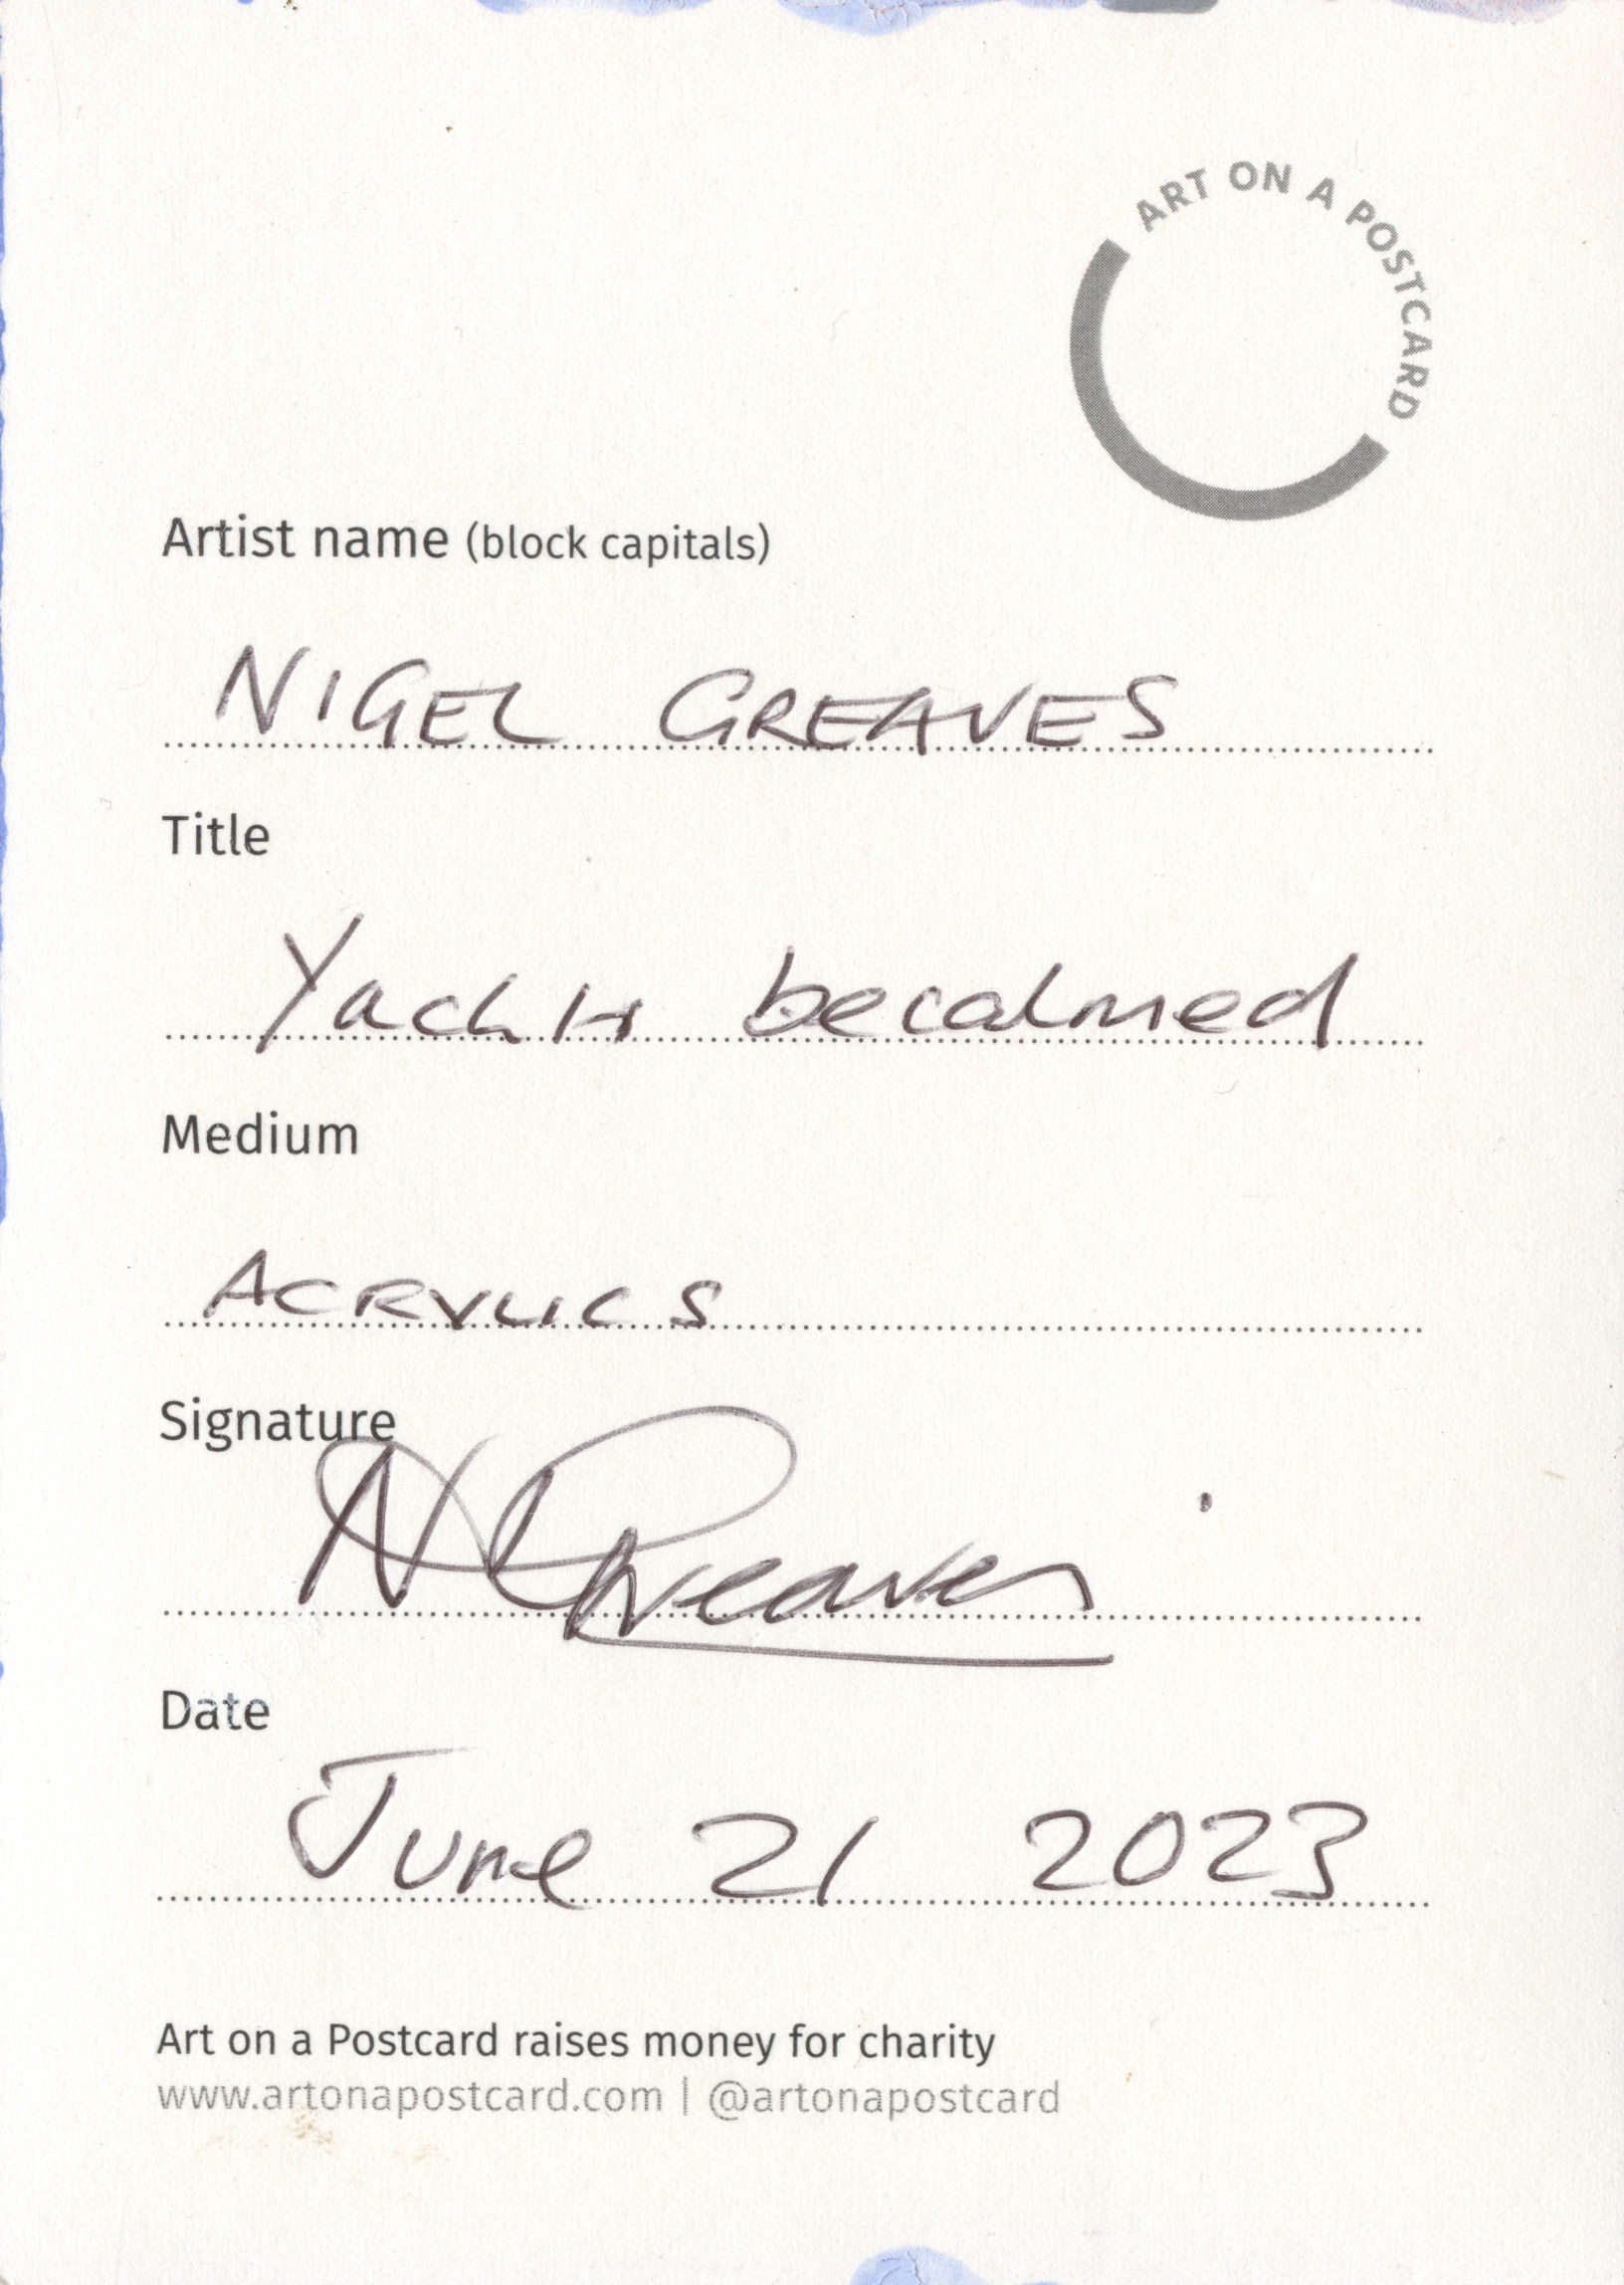 ART ON A POSTCARD
Artist name (block capitals)
NIGEL GREAVES
Title
Yachts becalmed
Medium
ACRYLICS
Signature
N Greaves
Date
June 21 2023
Art on a Postcard raises money for charity
www.artonapostcard.com | @artonapostcard